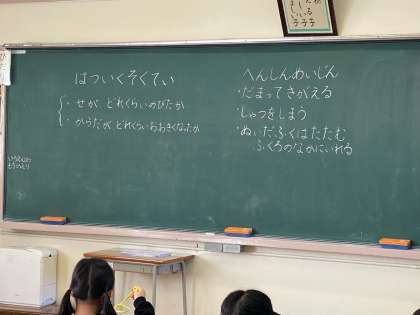 はついくそくてい
・せが どれくらいのびたか
・からだが どれくらいおおきくなったか
へんしんめいじん
・だまってきがえる
・しゃつをしまう
・ぬいだふくはたたむ
ふくろのなかにいれる